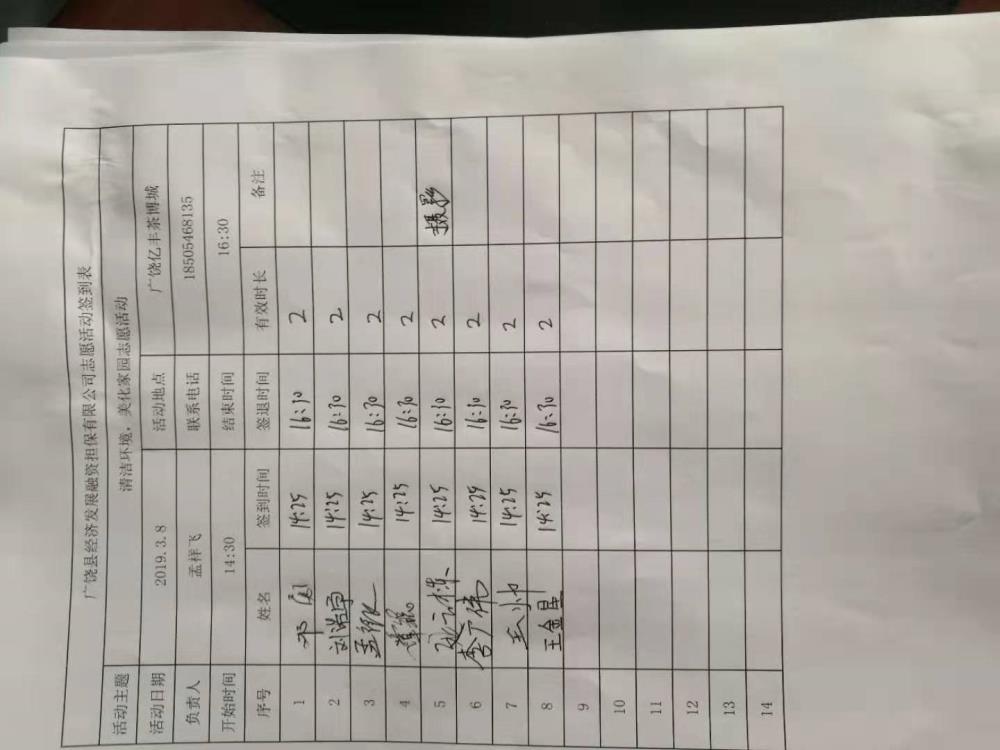 广饶县经济发展融资担保有限公司志愿活动签到表
活动主题 清洁环境，美化家园志愿活动
活动日期 2019.3.8 活动地点 广饶亿丰茶博城
负责人 孟样飞 联系电话 18505468135
开始时间 14:30 结束时间 16:30
序号 姓名 签到时间 签退时间 有效时长 备注
1 14:25 16:30 2
2 刘浩宇 14:25 16:30 2
3 14:25 16:30 2
4 14:25 16:30 2
5 14:25 16:30 2 摄影
6 李广伟 14:25 16:30 2
7 14:25 16:30 2
8 王金星 14:25 16:30 2
9
10
11
12
13
14